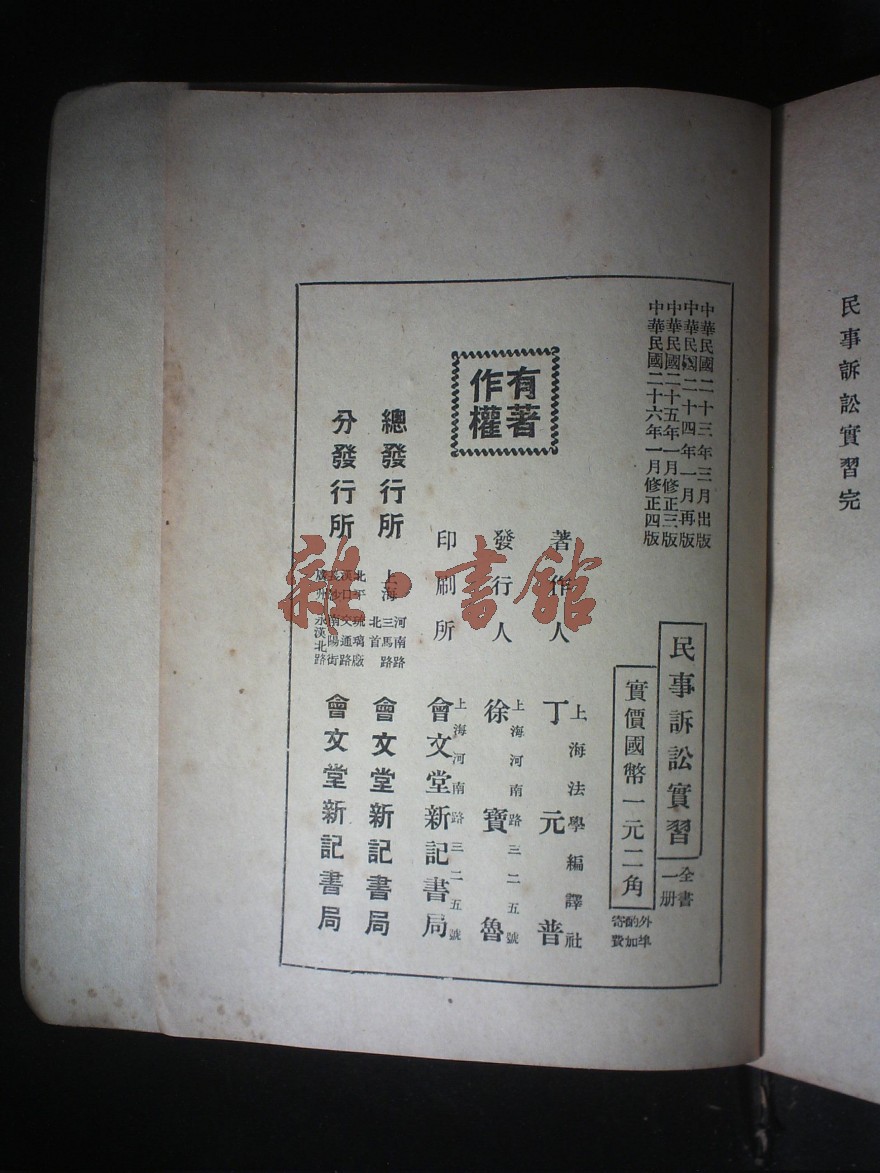 民事訴訟實習完
中華民國二十三年三月出版
中華民國二十四年一月再版
中華民國二十五年一月修正三版
中華民國二十六年一月修正四版
民事訴訟實習
全書
一册
實價國幣一元二角
外埠
酌加
寄費
有著
作權
著作人
上海法學編譯社
丁元普
發行人
上海河南路三二五號
徐寶魯
印刷所
上海河南路三二五號
會文堂新記書局
總發行所
上海
河南路
三馬路
北首
會文堂新記書局
分發行所
北平琉璃廠
漢口交通路
長沙南陽街
廣州永漢北路
會文堂新記書局
雜·書館